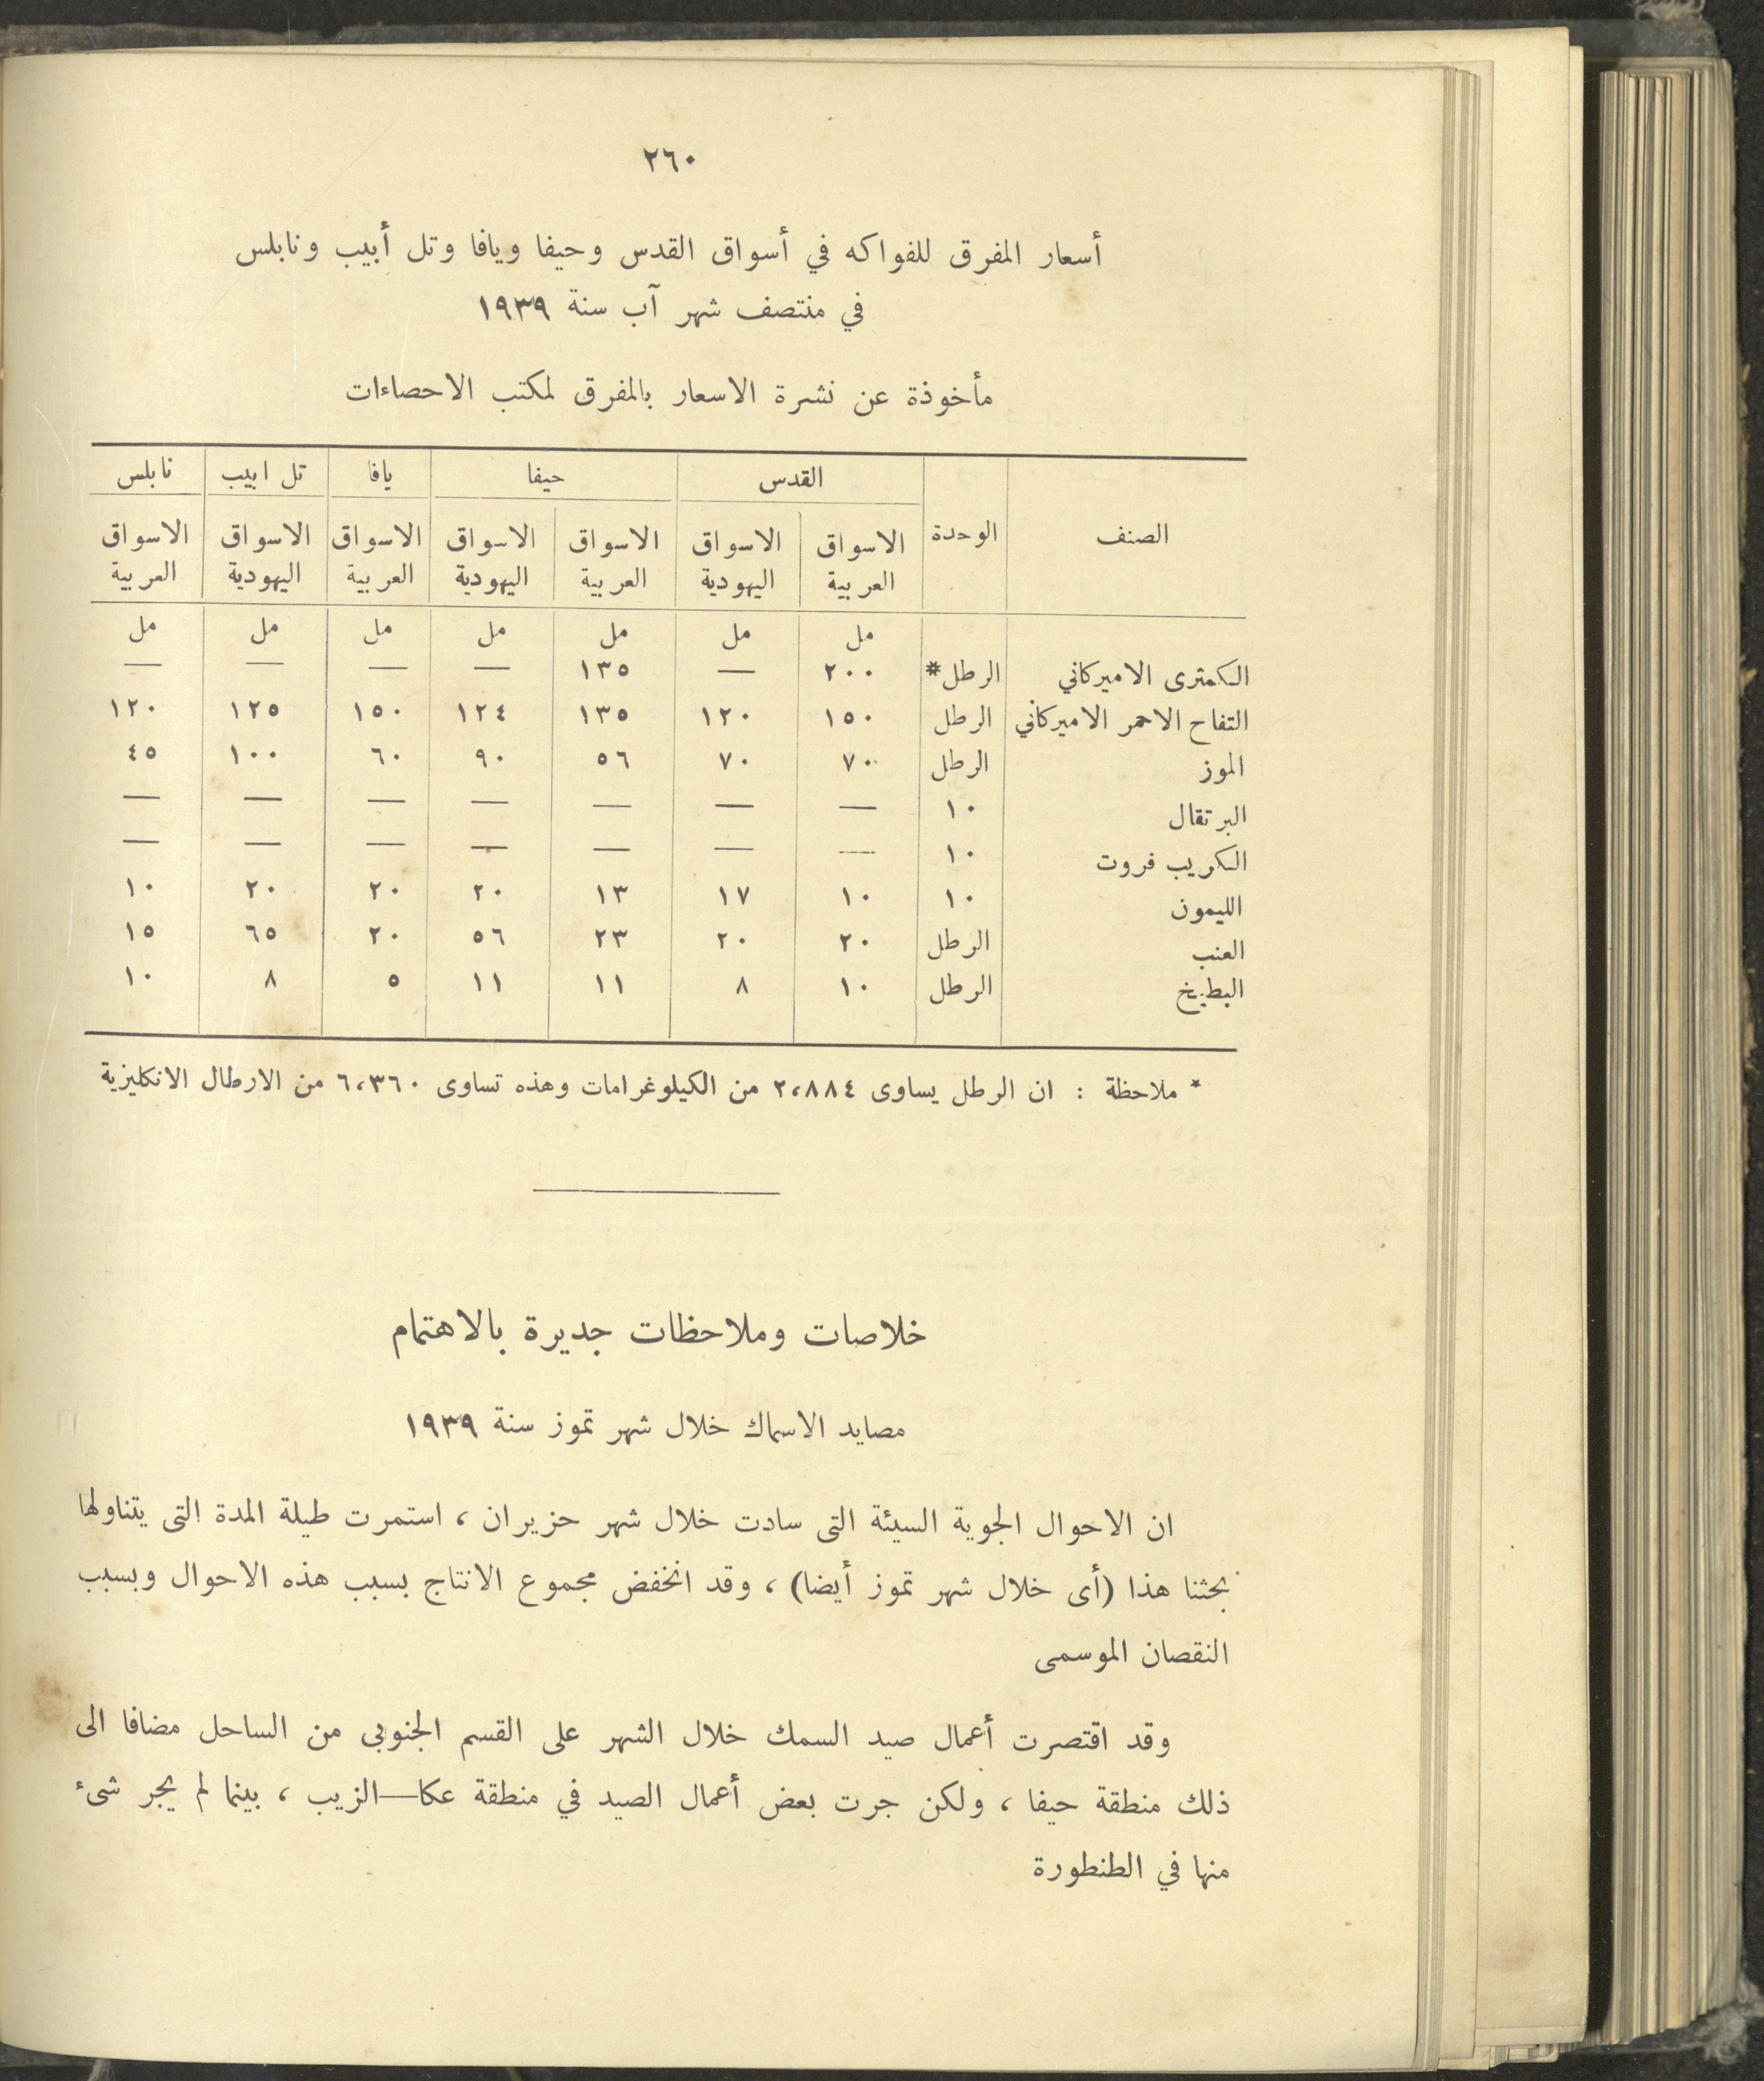 ٢٦٠
أسعار المفرق للفواكه في أسواق القدس وحيفا ويافا وتل أبيب ونابلس
في منتصف شهر آب سنة ١٩٣٩
مأخوذة عن نشرة الاسعار بالمفرق لمكتب الاحصاءات
الصنف الوحدة القدس حيفا يافا تل ابيب نابلس
الاسواق الاسواق الاسواق الاسواق الاسواق الاسواق الاسواق
العربية اليهودية العربية اليهودية العربية اليهودية العربية
مل مل مل مل مل مل مل
الكمثرى الاميركاني الرطل* ٢٠٠ — ١٣٥ — — — —
التفاح الاحمر الاميركاني الرطل ١٥٠ ١٢٠ ١٣٥ ١٢٤ ١٥٠ ١٢٥ ١٢٠
الموز الرطل ٧٠ ٧٠ ٥٦ ٩٠ ٦٠ ١٠٠ ٤٥
البرتقال ١٠ — — — — — — —
الكريب فروت ١٠ — — — — — — —
الليمون ١٠ ١٠ ١٧ ١٣ ٢٠ ٢٠ ٢٠ ١٠
العنب الرطل ٢٠ ٢٠ ٢٣ ٥٦ ٢٠ ٦٥ ١٥
البطيخ الرطل ١٠ ٨ ١١ ١١ ٥ ٨ ١٠
* ملاحظة : ان الرطل يساوى ٢،٨٨٤ من الكيلوغرامات وهذه تساوى ٦،٣٦٠ من الارطال الانكليزية
خلاصات وملاحظات جديرة بالاهتمام
مصايد الاسماك خلال شهر تموز سنة ١٩٣٩
ان الاحوال الجوية السيئة التى سادت خلال شهر حزيران ، استمرت طيلة المدة التى يتناولها
بحثنا هذا (أى خلال شهر تموز أيضا) ، وقد انخفض مجموع الانتاج بسبب هذه الاحوال وبسبب
النقصان الموسمى
وقد اقتصرت أعمال صيد السمك خلال الشهر على القسم الجنوبى من الساحل مضافا الى
ذلك منطقة حيفا ، ولكن جرت بعض أعمال الصيد في منطقة عكا—الزيب ، بينما لم يجر شىء
منها في الطنطورة